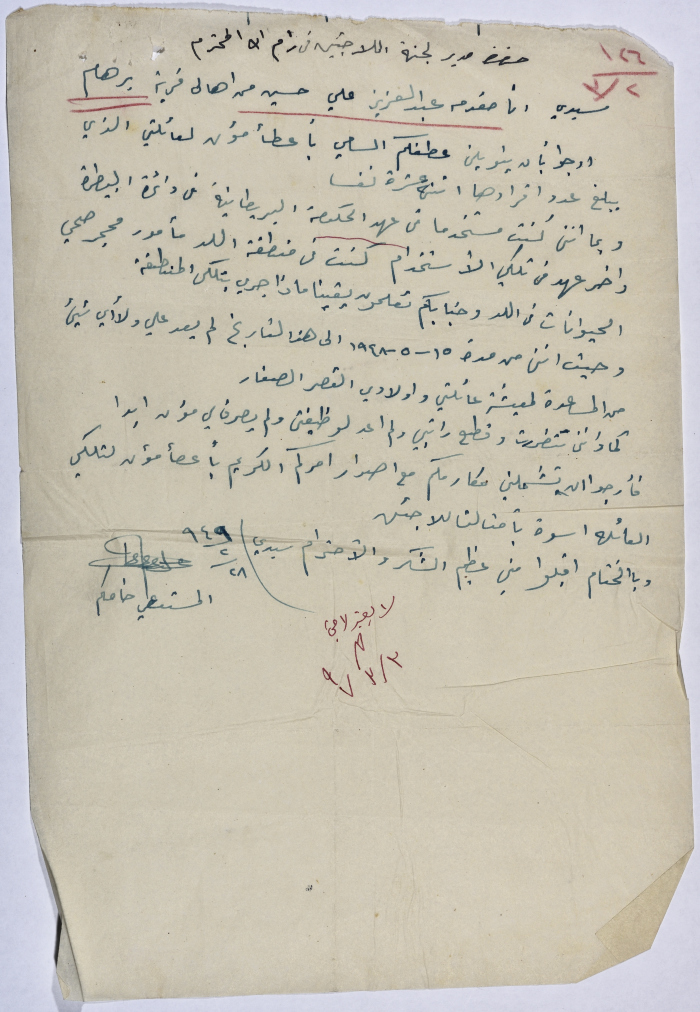 ١٢٦
٣/٢
حضرة مدير لجنة اللاجئين في رام الله المحترم
سيدي انا مقدمه عبد العزيز علي حسين من اهالي قرية برهام
ارجوا بأن ينولني عطفكم السامي بأعطأ مؤن لعائلتي الذي
يبلغ عدد افرادها اثني عشرة نفسا
وبما انني كنت مستخدما في عهد الحكومة البريطانية في دائرة البيطرة
واخر عهد في تلكي الأستخدام كنت في منطقة اللد مأمور محجر صحي
الحيوانات في اللد وجنابكم تعلمون يقينا ماذا جرى بتلكي المنطقة
وحيث انني من مدة ١٥-٥-١٩٤٨ الى هذا التاريخ لم يعد علي ولا أي شيئ
من المساعدة لمعيشة عائلتي واولادي القصر الصغار
كما وانني تتضررت وقطع راتبي ولم اعد لوظيفتي ولم يصرف لي مؤن ابدا
فأرجوا ان تشملني مكارمكم مع اصدار امركم الكريم بأعطأ مؤن لتلكي
العائلة اسوة بأمثالنا للاجئين
وبالختام اقبلوا مني عظيم الشكر والأحترام سيدي
٩٤٩/٢/٢٨
المستدعي خادمكم
لا يعتبر لاجئ
٣/٣/٩